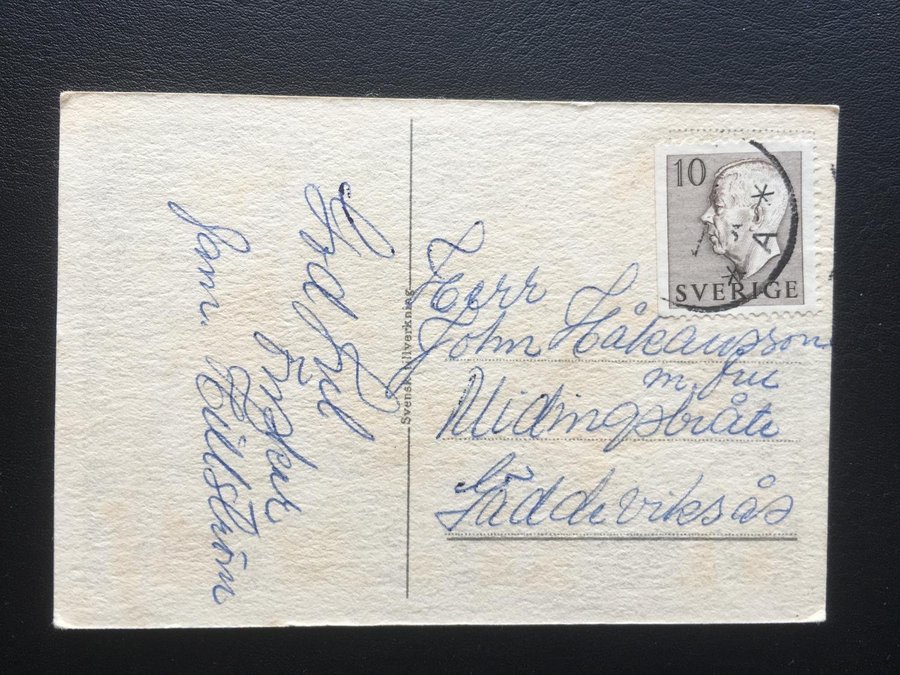 God Jul
önskar
fam. Hillström
Svensk tillverkning
10
SVERIGE
* A *
Herr
John Håkansson
m. fru
Midingsbråte
Gäddeviksås